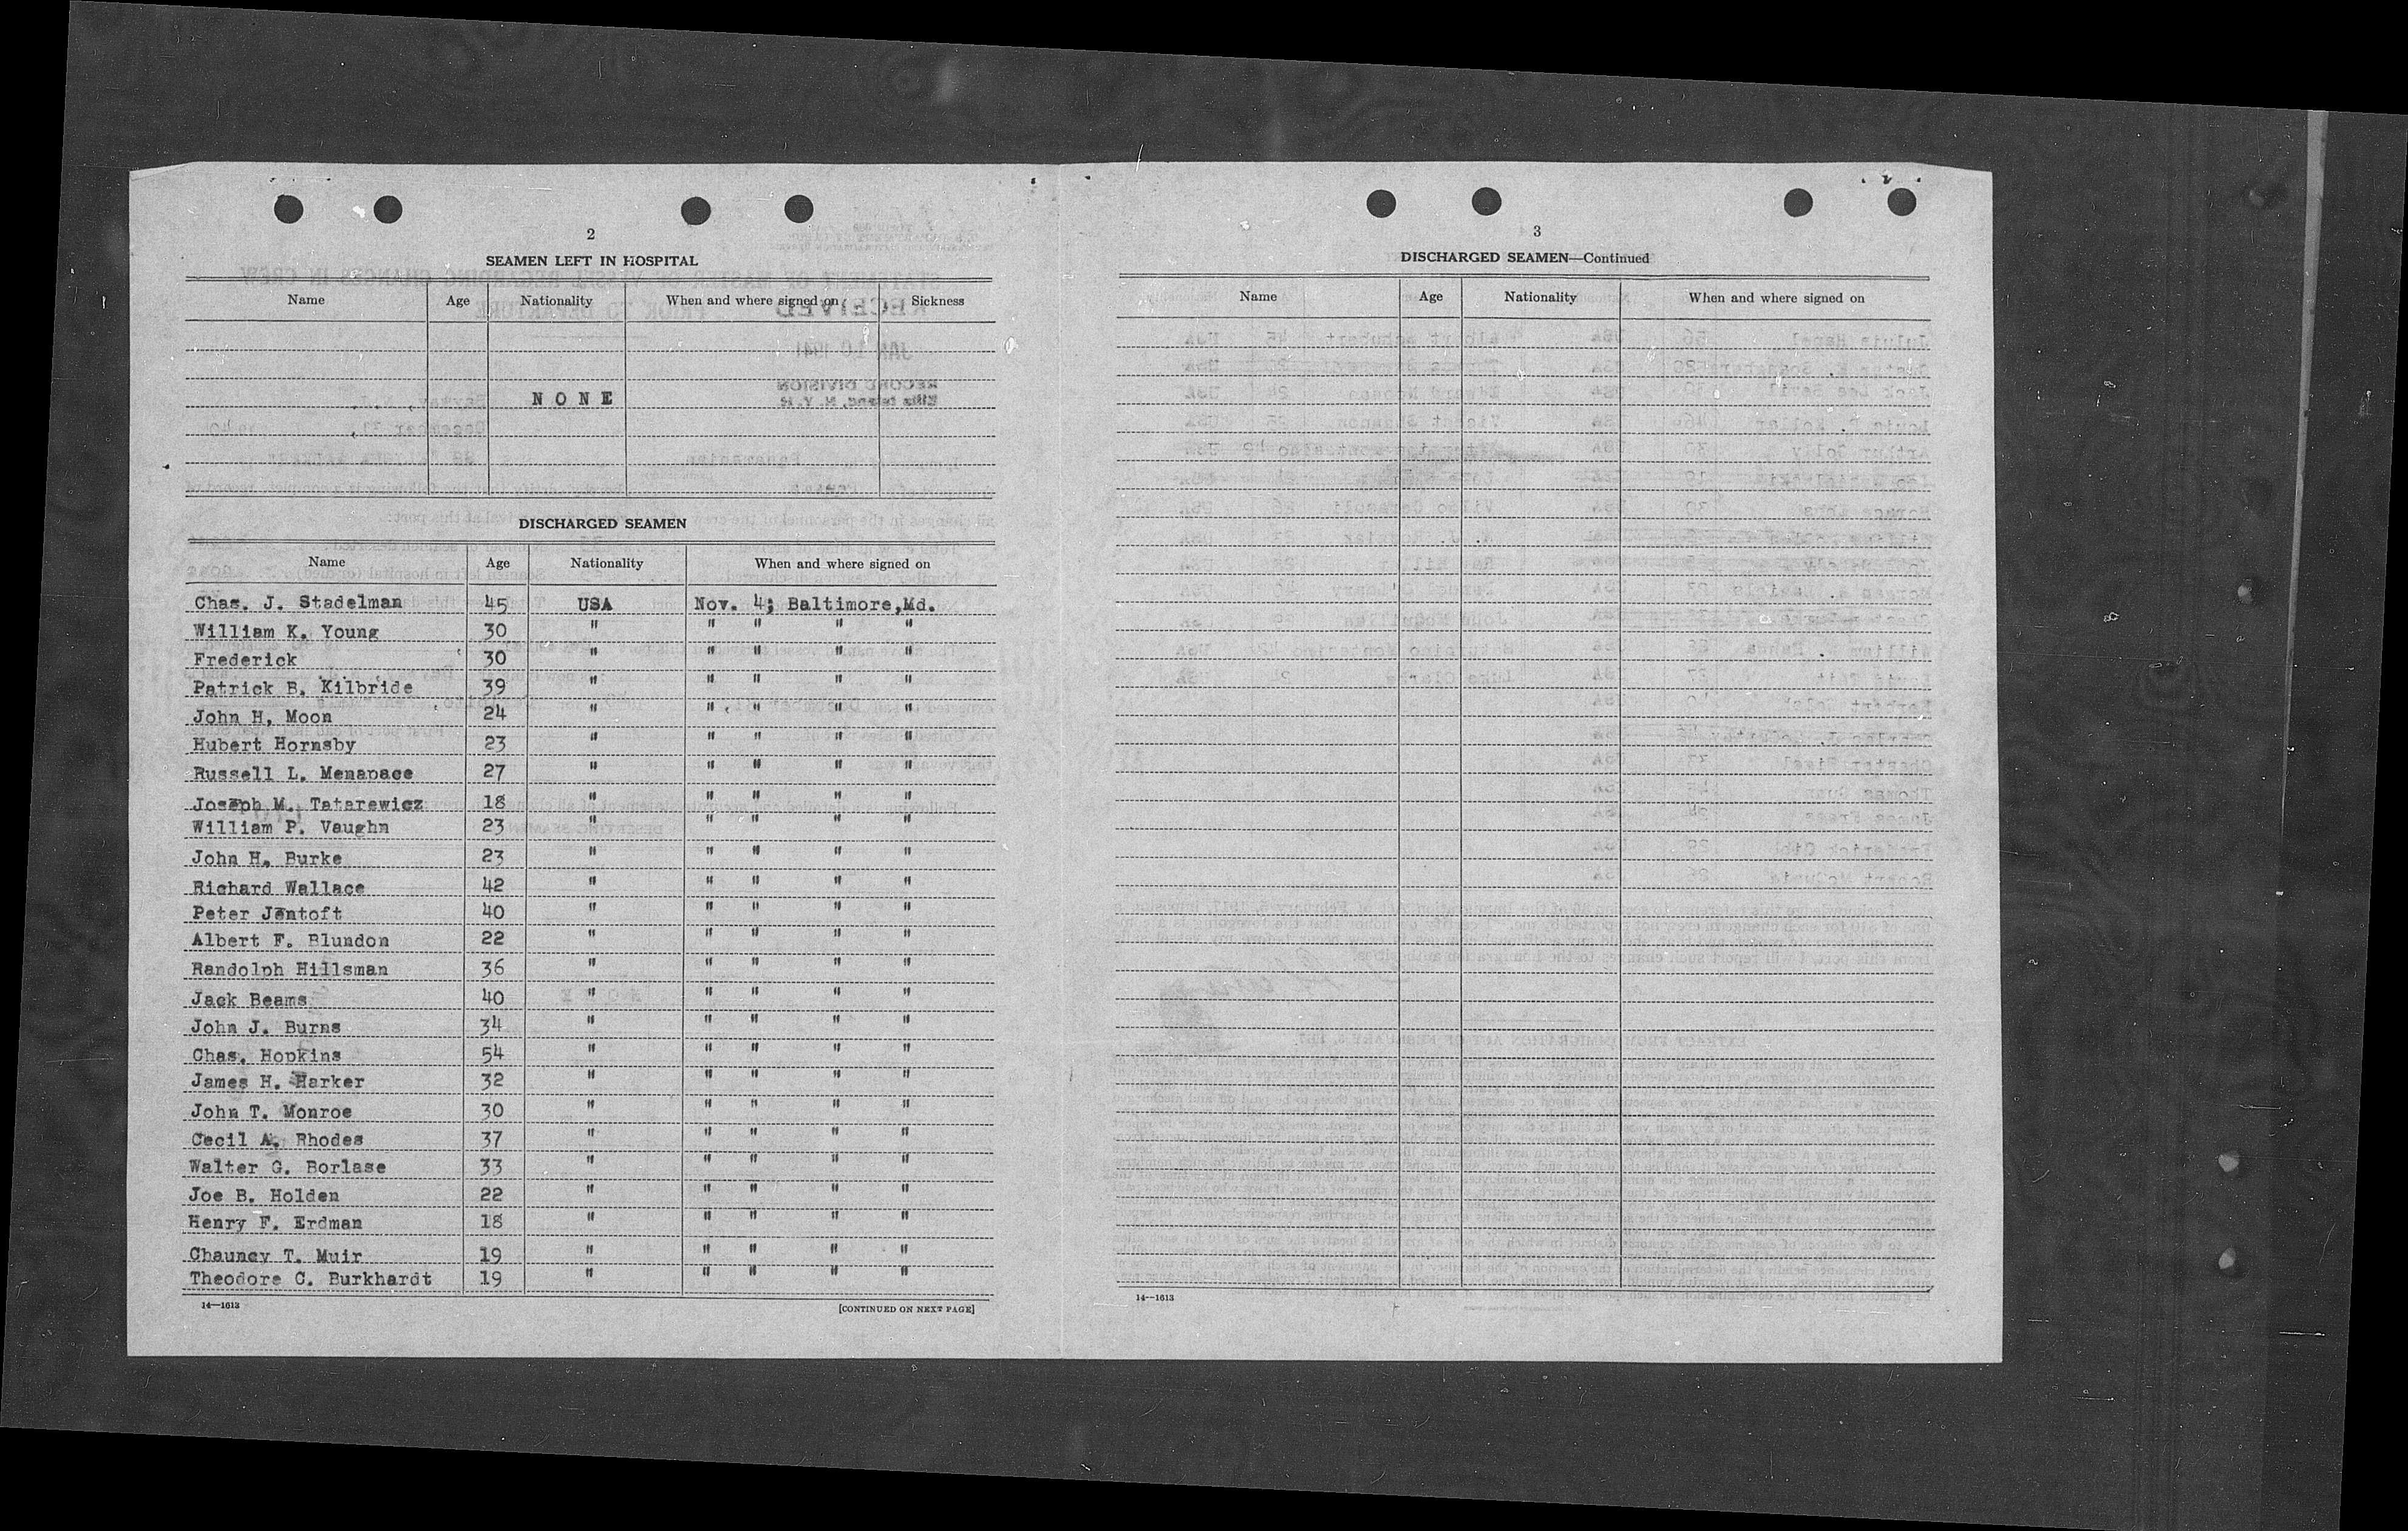 2
SEAMEN LEFT IN HOSPITAL
Name Age Nationality When and where signed on Sickness
NONE
DISCHARGED SEAMEN
Name Age Nationality When and where signed on
Chas. J. Stadelman 45 USA Nov. 4; Baltimore,Md.
William K. Young 30 " " " " "
Frederick 30 " " " " "
Patrick B. Kilbride 39 " " " " "
John H. Moon 24 " " " " "
Hubert Hornsby 23 " " " " "
Russell L. Menapace 27 " " " " "
Joseph M. Tatarewicz 18 " " " " "
William P. Vaughn 23 " " " " "
John H. Burke 23 " " " " "
Richard Wallace 42 " " " " "
Peter Jentoft 40 " " " " "
Albert F. Blundon 22 " " " " "
Randolph Hillsman 36 " " " " "
Jack Beams 40 " " " " "
John J. Burns 34 " " " " "
Chas. Hopkins 54 " " " " "
James H. Harker 32 " " " " "
John T. Monroe 30 " " " " "
Cecil A. Rhodes 37 " " " " "
Walter G. Borlase 33 " " " " "
Joe B. Holden 22 " " " " "
Henry F. Erdman 18 " " " " "
Chauncy T. Muir 19 " " " " "
Theodore C. Burkhardt 19 " " " " "
14—1613 [CONTINUED ON NEXT PAGE]
3
DISCHARGED SEAMEN—Continued
Name Age Nationality When and where signed on
14—1613